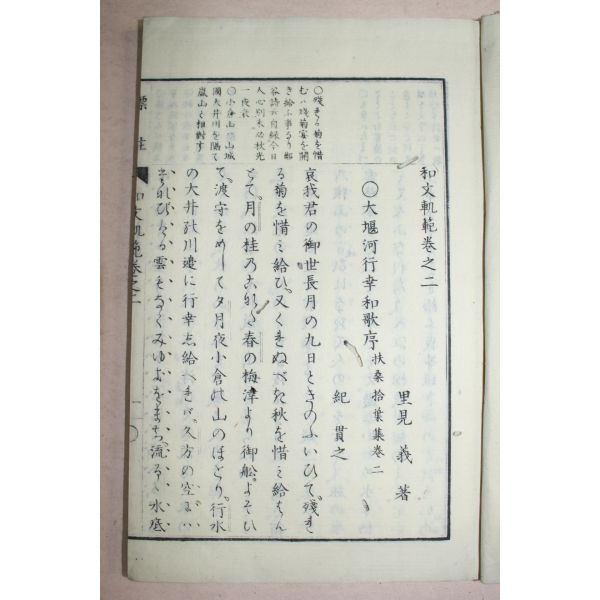 和文軌範卷之二
里見義著
○大堰河行幸和歌序 扶桑拾葉集卷二
紀貫之
哀我君の御世長月の九日ときのふいひて、殘れ
る菊を惜ミ給ひ、又くれぬべき秋を惜ミ給はん
とて、月の桂乃こなた春の梅津より御舩よそひ
て、渡守をめして夕月夜小倉の山のほとり、行水
の大井の川邊に行幸し給へれば、久方の空には
たなびける雲もなくみゆきをまち、流るゝ水底
○殘れる菊を惜
むハ殘菊宴を開
き給ふ事なり鄭
谷詩に自緣今日
人心別未必秋光
一夜衰
○小倉山ハ山城
國大井川を隔て
嵐山と相對す
標註
和文軌範卷之二
一